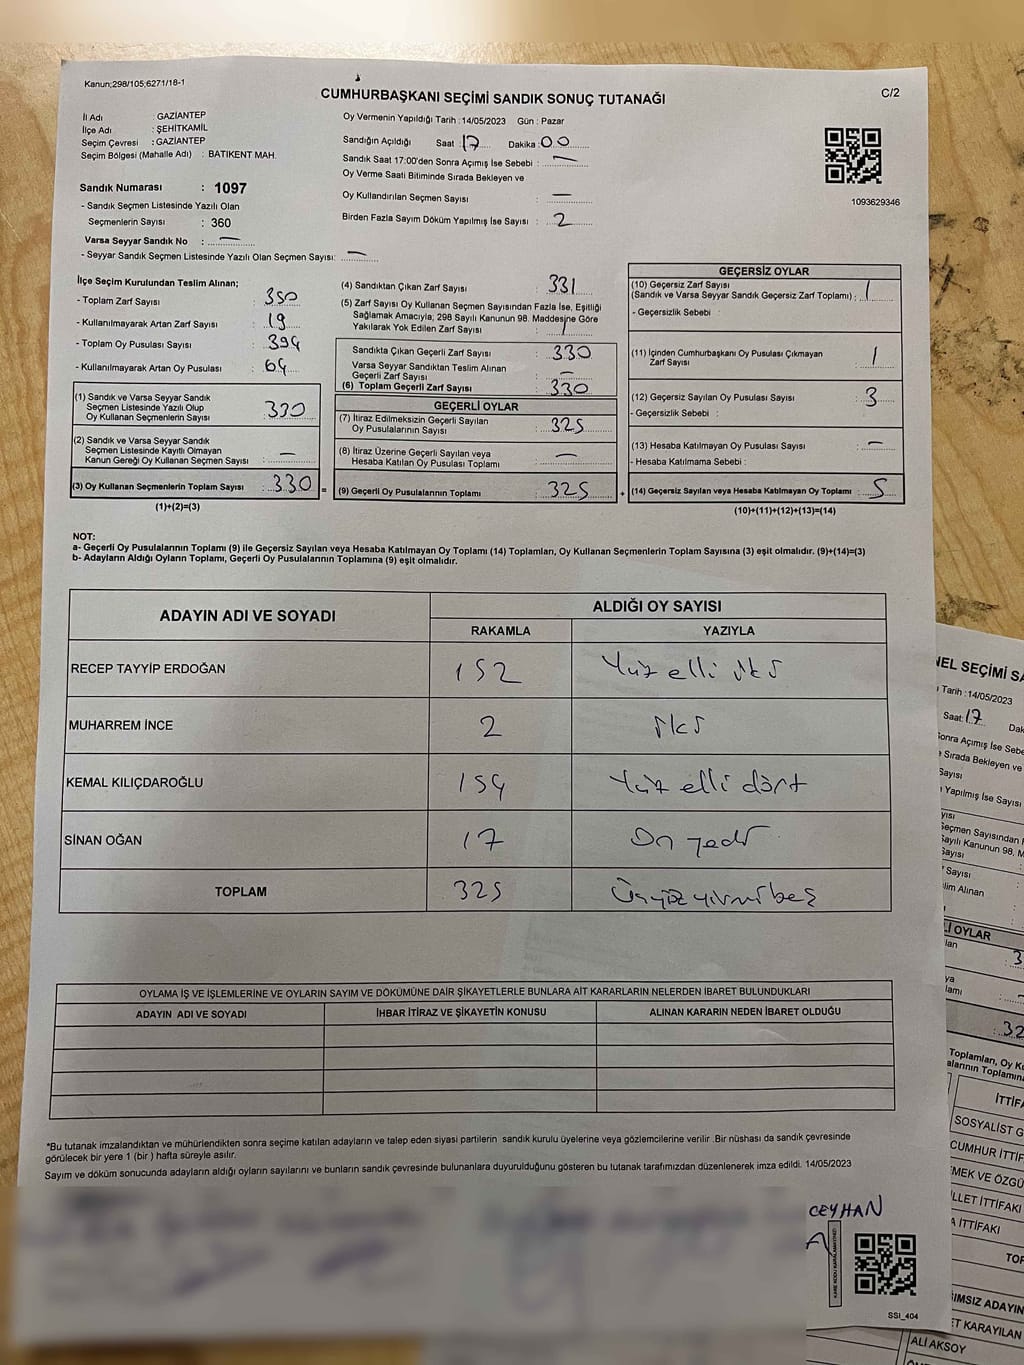 Kanun;298/105;6271/18-1
CUMHURBAŞKANI SEÇİMİ SANDIK SONUÇ TUTANAĞI
C/2
İl Adı : GAZİANTEP
İlçe Adı : ŞEHİTKAMİL
Seçim Çevresi : GAZİANTEP
Seçim Bölgesi (Mahalle Adı) : BATIKENT MAH.
Sandık Numarası : 1097
- Sandık Seçmen Listesinde Yazılı Olan
Seçmenlerin Sayısı : 360
Varsa Seyyar Sandık No : —
- Seyyar Sandık Seçmen Listesinde Yazılı Olan Seçmen Sayısı: —
Oy Vermenin Yapıldığı Tarih : 14/05/2023 Gün : Pazar
Sandığın Açıldığı Saat : 17 Dakika : 00
Sandık Saat 17:00'den Sonra Açımış İse Sebebi : —
Oy Verme Saati Bitiminde Sırada Bekleyen ve
Oy Kullandırılan Seçmen Sayısı : —
Birden Fazla Sayım Döküm Yapılmış İse Sayısı : 2
1093629346
İlçe Seçim Kurulundan Teslim Alınan;
- Toplam Zarf Sayısı : 350
- Kullanılmayarak Artan Zarf Sayısı : 19
- Toplam Oy Pusulası Sayısı : 394
- Kullanılmayarak Artan Oy Pusulası : 64
(1) Sandık ve Varsa Seyyar Sandık
Seçmen Listesinde Yazılı Olup
Oy Kullanan Seçmenlerin Sayısı : 330
(2) Sandık ve Varsa Seyyar Sandık
Seçmen Listesinde Kayıtlı Olmayan
Kanun Gereği Oy Kullanan Seçmen Sayısı : —
(3) Oy Kullanan Seçmenlerin Toplam Sayısı : 330
(1)+(2)=(3)
(4) Sandıktan Çıkan Zarf Sayısı : 331
(5) Zarf Sayısı Oy Kullanan Seçmen Sayısından Fazla İse, Eşitliği
Sağlamak Amacıyla; 298 Sayılı Kanunun 98. Maddesine Göre
Yakılarak Yok Edilen Zarf Sayısı : 1
Sandıkta Çıkan Geçerli Zarf Sayısı : 330
Varsa Seyyar Sandıktan Teslim Alınan
Geçerli Zarf Sayısı : —
(6) Toplam Geçerli Zarf Sayısı : 330
GEÇERLİ OYLAR
(7) İtiraz Edilmeksizin Geçerli Sayılan
Oy Pusulalarının Sayısı : 325
(8) İtiraz Üzerine Geçerli Sayılan veya
Hesaba Katılan Oy Pusulası Toplamı : —
= (9) Geçerli Oy Pusulalarının Toplamı : 325 +
GEÇERSİZ OYLAR
(10) Geçersiz Zarf Sayısı
(Sandık ve Varsa Seyyar Sandık Geçersiz Zarf Toplamı) : 1
- Geçersizlik Sebebi :
(11) İçinden Cumhurbaşkanı Oy Pusulası Çıkmayan
Zarf Sayısı : 1
(12) Geçersiz Sayılan Oy Pusulası Sayısı : 3
- Geçersizlik Sebebi :
(13) Hesaba Katılmayan Oy Pusulası Sayısı : —
- Hesaba Katılmama Sebebi :
(14) Geçersiz Sayılan veya Hesaba Katılmayan Oy Toplamı : 5
(10)+(11)+(12)+(13)=(14)
NOT:
a- Geçerli Oy Pusulalarının Toplamı (9) ile Geçersiz Sayılan veya Hesaba Katılmayan Oy Toplamı (14) Toplamları, Oy Kullanan Seçmenlerin Toplam Sayısına (3) eşit olmalıdır. (9)+(14)=(3)
b- Adayların Aldığı Oyların Toplamı, Geçerli Oy Pusulalarının Toplamına (9) eşit olmalıdır.
ADAYIN ADI VE SOYADI
ALDIĞI OY SAYISI
RAKAMLA YAZIYLA
RECEP TAYYİP ERDOĞAN 152 Yüz elli iki
MUHARREM İNCE 2 iki
KEMAL KILIÇDAROĞLU 154 Yüz elli dört
SİNAN OĞAN 17 On yedi
TOPLAM 325 Üçyüz yirmi beş
OYLAMA İŞ VE İŞLEMLERİNE VE OYLARIN SAYIM VE DÖKÜMÜNE DAİR ŞİKAYETLERLE BUNLARA AİT KARARLARIN NELERDEN İBARET BULUNDUKLARI
ADAYIN ADI VE SOYADI İHBAR İTİRAZ VE ŞİKAYETİN KONUSU ALINAN KARARIN NEDEN İBARET OLDUĞU
*Bu tutanak imzalandıktan ve mühürlendikten sonra seçime katılan adayların ve talep eden siyasi partilerin sandık kurulu üyelerine veya gözlemcilerine verilir .Bir nüshası da sandık çevresinde
görülecek bir yere 1 (bir ) hafta süreyle asılır.
Sayım ve döküm sonucunda adayların aldığı oyların sayılarını ve bunların sandık çevresinde bulunanlara duyurulduğunu gösteren bu tutanak tarafımızdan düzenlenerek imza edildi. 14/05/2023
CEYHAN
A
KARE KODU KARALAMAYINIZ!
SSI_404
NEL SEÇİMİ SA
Tarih :14/05/2023
Saat: 17 Dak
Sonra Açımış İse Sebe
Sırada Bekleyen ve
Sayısı
Yapılmış İse Sayısı
yısı
Seçmen Sayısından
Sayılı Kanunun 98. M
Sayısı
Sayısı
lim Alınan
Lİ OYLAR
lan
3
ya
lamı
32
Toplamları, Oy Ku
alarının Toplamına
İTTİFA
SOSYALİST G
CUMHUR İTTİF
MEK VE ÖZGÜ
LLET İTTİFAKI
A İTTİFAKI
TOP
IMSIZ ADAYIN
ET KARAYILAN
ALİ AKSOY